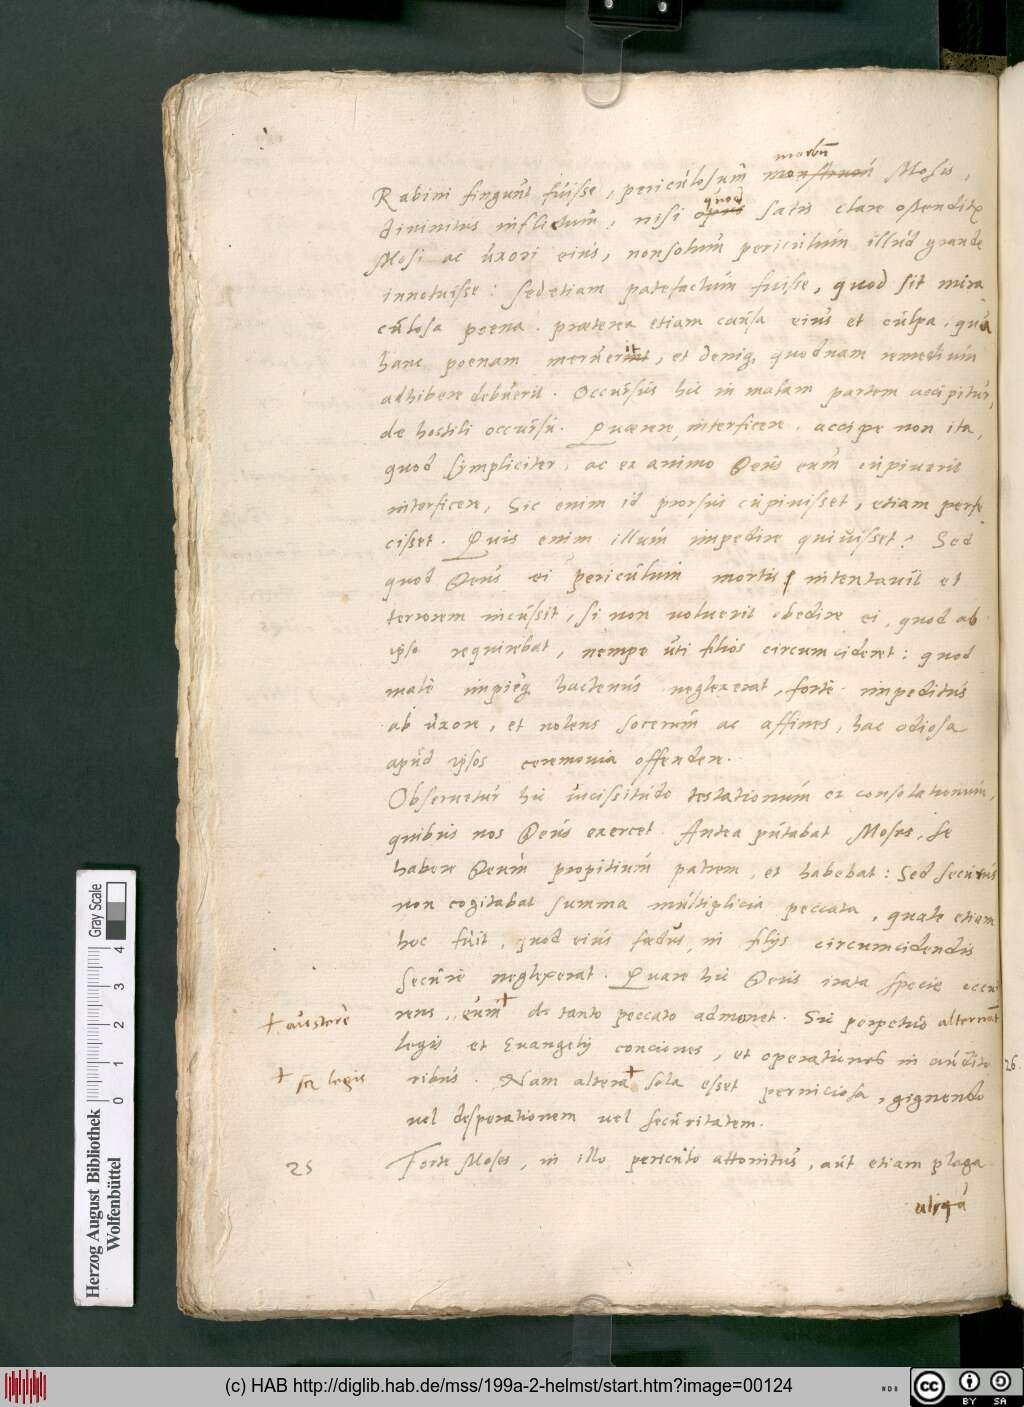 morbū
Rabini fingunt fuisse, periculosum monstruon Mosis,
quod
divinitus inflictum, nisi opus satis clare ostenditr
Mosi ac uxori eius, nonsolum periculum illud grande
innotuisse: sed etiam patefactum fuisse, quod sit mira
culosa poena. praeterea etiam causa eius et culpa, qua
hanc poenam meruerit, et deniq, quodnam remedium
adhibere debuerit. Occursus hic in malam partem accipitur,
de hostili occursu. Quaerere interficere, accipe non ita,
quod simpliciter, ac ex animo Deus eum cupiverit
interficere, Sic enim id prorsus cupivisset, etiam perfe
cisset. Quis enim illum impedire quivisset? Sed
quod Deus ei periculum mortis intentavit et
terrorem incussit, si non voluerit obedire ei, quod ab
ipso requirebat, nempe uti filios circumcideret: quod
malè impièq hactenus neglexerat, fortè impeditus
ab uxore, et nolens socerum ac affines, hac odiosa
apud ipsos ceremonia offendere.
Observetur hic vicissitudo testationum et consolationum,
quibus nos Deus exercet. Antea putabat Moses, se
habere Deum propitium patrem, et habebat: Sed securus
non cogitabat summa multiplicia peccata, quale etiam
hoc fuit, quod eius foedus in filijs circumcidendis
securè neglexerat. Quare hic Deus irata specie occur
rens, eum + de tanto peccato admonet. Sic perpetuò alternat
+ austerè
legis et Evangelij conciones, et operationes in audito
26.
ribus. Nam altera + sola esset perniciosa, gignendo
+ scz legis
vel desperationem vel securitatem.
25 Forte Moses, in illo periculo attonitus, aut etiam plaga
aliqua
Gray Scale
0 1 2 3 4
Herzog August Bibliothek
Wolfenbüttel
(c) HAB http://diglib.hab.de/mss/199a-2-helmst/start.htm?image=00124
cc BY SA